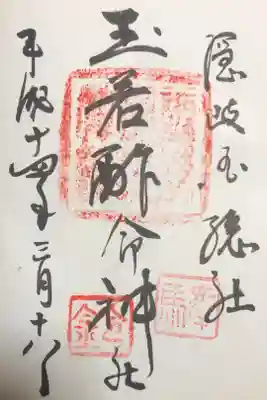 隠岐国総社
玉若酢命神社
平成十四年三月十八日